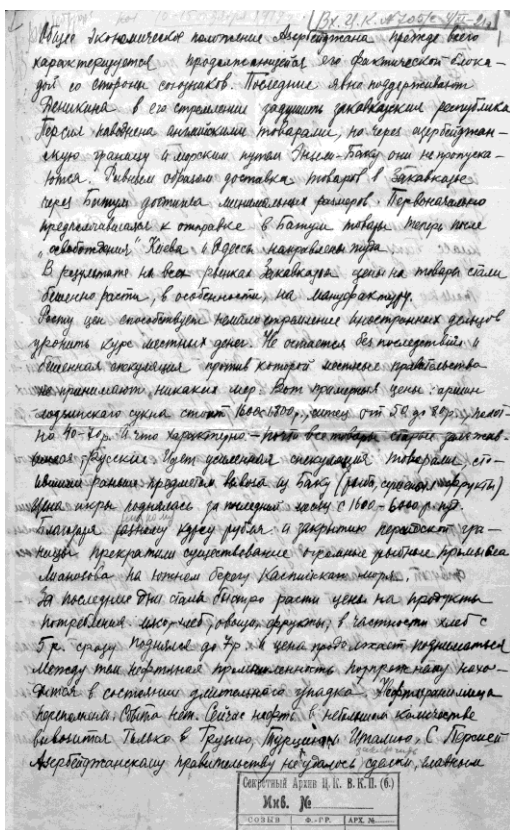 Вх. Ц.К. №
Общее экономическое положение Азербейджана прежде всего
характеризуется продолжающейся его фактической блока-
дой со стороны союзников. Последние явно поддерживают
Деникина в его стремлении задушить закавказския республики
Персия наводнена английскими товарами, но через азербейджан-
скую границу и морским путем Энзели-Баку они не пропуска-
ются. Равным образом доставка товаров в Закавказье
через Батум достигла минимальных размеров. Первоначально
предполагавшиеся к отправке в Батум товары теперь после
"освобождения" Киева и Одессы направлены туда.
В результате на всех рынках Закавказья цены на товары стали
бешенно расти, в особенности, на мануфактуру.
Росту цен способствует стремление иностранных дельцов
уронить курс местных денег. Не остается без последствий и
бешенная спекуляция против которой местные правительства
не принимают никаких мер. Вот примерныя цены: аршин
лодзинского сукна стоит р., ситец от 50 до 80 р.,
на 40-70 р. И что характерно - почти все товары старые,
русские. Идет усиленная спекуляция товарами,
раньше предметом вывоза из Баку (рыба, фрукты)
Цена икры поднялась за последний месяц с 1600-6000 р. пуд.
Благодаря курсу рубля и закрытию персидской гра-
ницы прекратили существование огромные рыбные промысла
Лианозова на южном берегу Каспийскаго моря.
За последние дни стали быстро расти цены на продукты
потребления: мясо, хлеб, овощи, фрукты; в частности хлеб с
5 р. сразу поднялся до 7 р. и цена продолжает подниматься
Между тем нефтяная промышленность по прежнему нахо-
дится в состоянии длительного упадка. Нефтехранилища
переполнены. Сбыта нет. Сейчас нефть в небольшом количестве
вывозится только в Грузию, Турцию и Италию. С Персией
Азербейджанскому правительству не удалось заключить сделки, главным
Секретный Архив Ц.К. В.К.П. (б.)
Инв. №
СОЗЫВ Ф.-ГР. АРХ. №